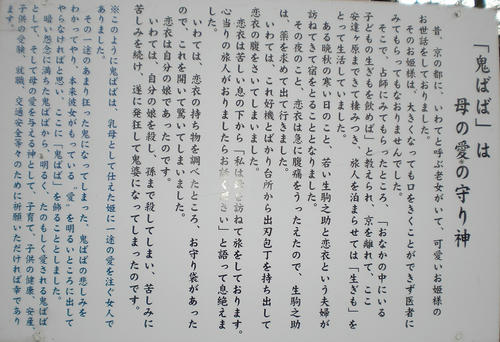 「鬼ばば」は
母の愛の守り神
昔、京の都に、いわてと呼ぶ老女がいて、可愛いお姫様の
お世話をしておりました。
そのお姫様は、大きくなっても口をきくことができず医者に
みてもらってもなおりませんでした。
そこで、占師にみてもらったところ、「おなかの中にいる
子どもの生ぎもを飲めば」と教えられ、京を離れて、ここ
安達ヶ原まできて棲みつき、旅人を泊まらせては「生ぎも」を
とって生活していました。
ある晩秋の寒い日のこと、若い生駒之助と恋衣という夫婦が
訪ねてきて宿をとることとなりました。
その夜のこと、恋衣は急に腹痛をうったえたので、生駒之助
は、薬を求めて出て行きました。
いわては、これ好機とばかり台所から出刃包丁を持ち出して
恋衣の腹をさいてしまいました。
恋衣は苦しい息の下から「私は を訪ねて旅をしております。
心当りの旅人がおりましたらお話 さい」と語って息絶えま
した。
いわては、恋衣の持ち物を調べたところ、お守り袋があった
ので、これを開いて驚いてしまいました。
恋衣は自分の娘であったのです。
いわては、自分の娘を殺し、孫まで殺してしまい、苦しみに
苦しみを続け、遂に発狂して鬼婆になってしまったのです。
※このように鬼ばばは、乳母として仕えた姫に一途の愛を注ぐ女人で
ありました。
その一途のあまり狂った鬼になってしまった、鬼ばばの悲しみを
わかってやり、本来彼女がもっている"愛"を明るいところに出して
やらなければと思い、ここに「鬼ばば」を飾ることとしました。
暗い怨念に満ちた鬼ばばから、明るく、たのもしく愛される鬼ばば
として、そして母の愛を与える神として、子育て、子供の健康、安産、
子供の受験、就職、交通安全等々のために祈願いただければ幸であり